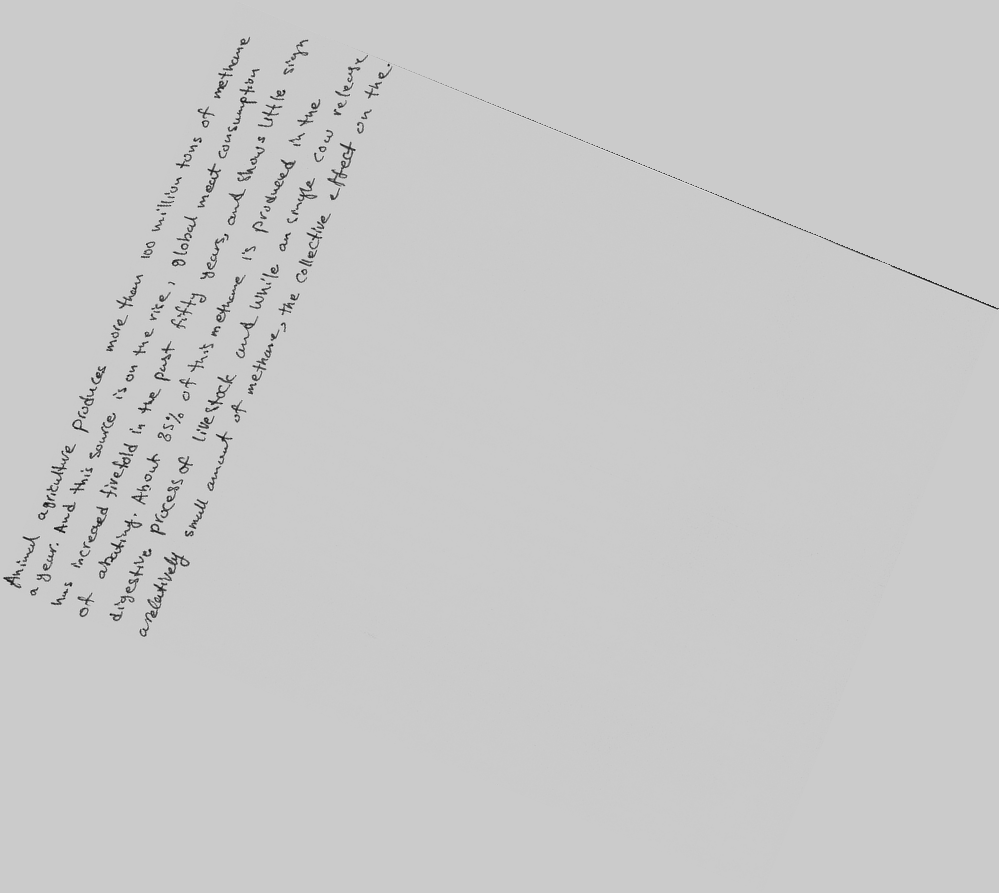 Animal agriculture produces more than 100 million tons of methane
a year. And this source is on the rise, global meat consumption
has increced fivefold in the past fifty years, and shows little sign
of abating. About 85% of this methane is produced in the
digestive process of livestock and while an single cow release
a relatively small amount of methane, the collective effect on the.